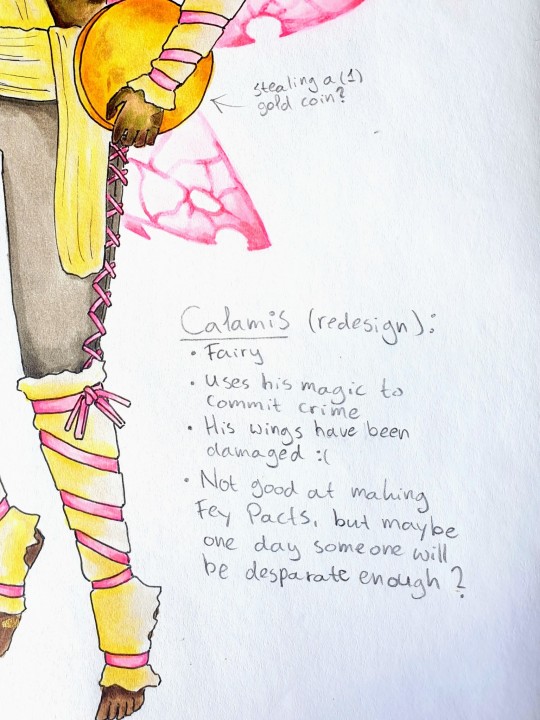 stealing a (1)
gold coin?
Calamis (redesign):
• Fairy
• Uses his magic to
commit crime
• His wings have been
damaged :(
• Not good at making
Fey Pacts, but maybe
one day someone will
be desparate enough?